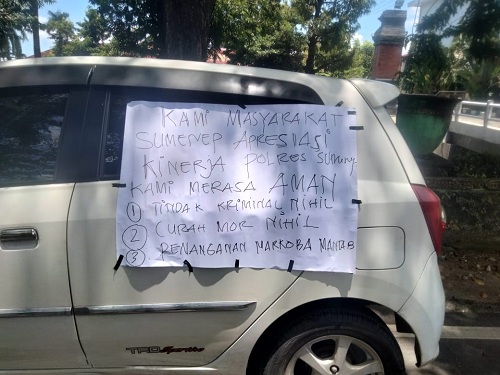 KAMI MASYARAKAT
SUMENEP APRESIASI
KINERJA POLRES SUMENEP
KAMI MERASA AMAN
1 TINDAK KRIMINAL NIHIL
2 CURAH MOR NIHIL
3 PENANGANAN NARKOBA MANTAB
TRD Sportivo